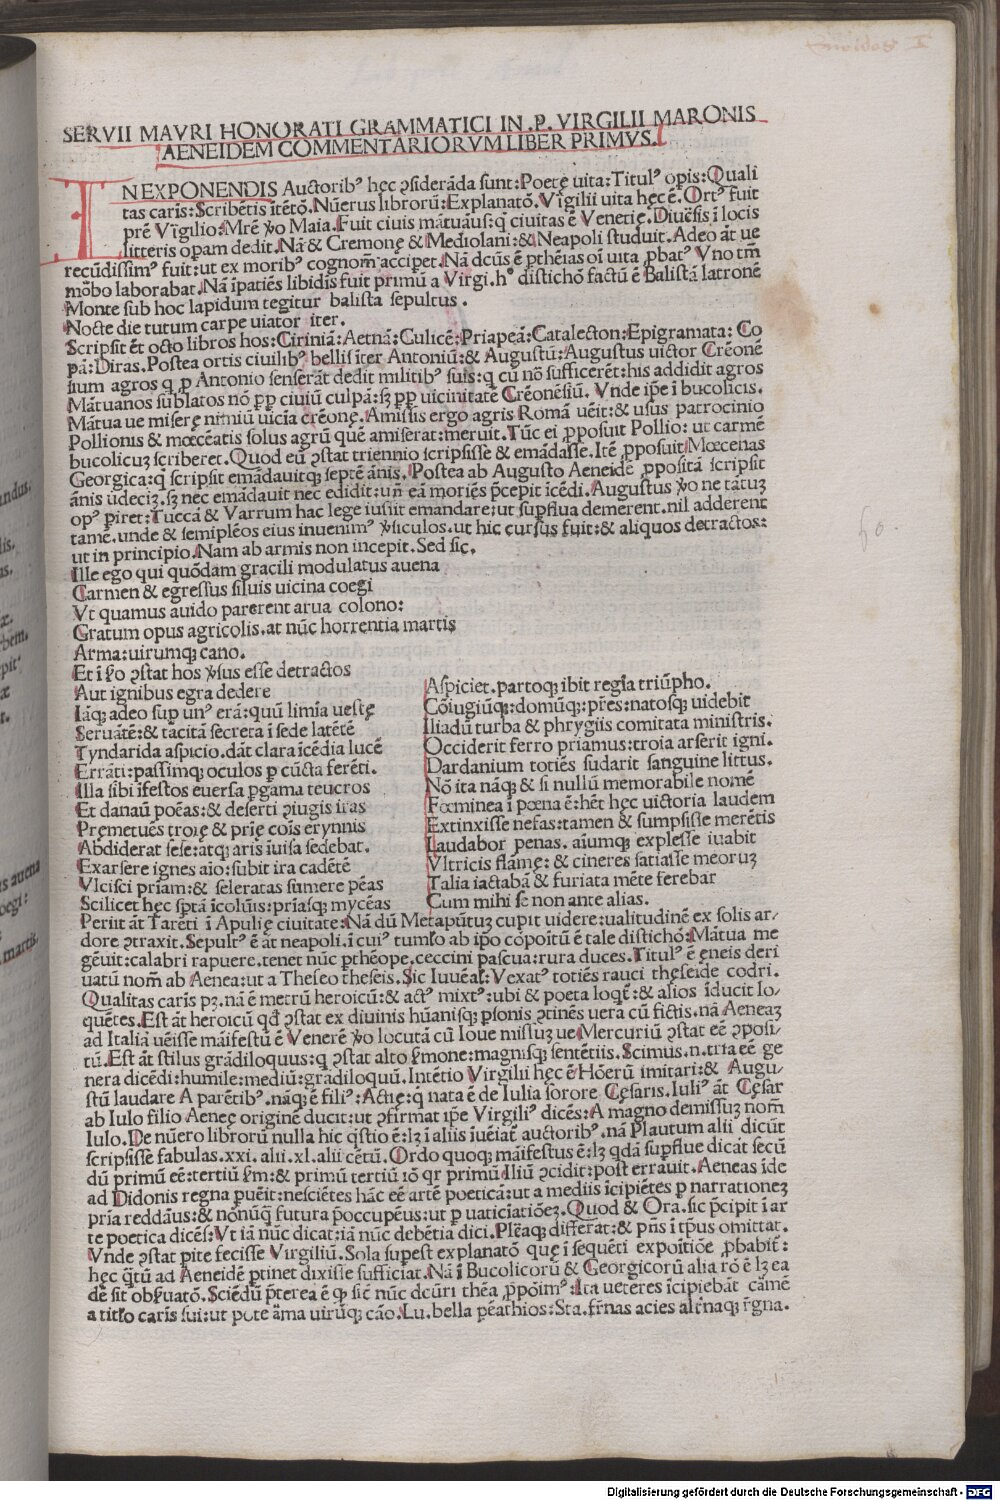 SERVII MAVRI HONORATI GRAMMATICI IN .P. VIRGILII MARONIS
AENEIDEM COMMENTARIORVM LIBER PRIMVS.
IN EXPONENDIS Auctoribꝰ hęc ꝯsiderãda sunt: Poetę uita: Titulꝰ opis: Quali
tas carĩs: Scribẽtis ĩtẽtõ. Nũerus librorũ: Explanatõ. Vĩgilii uita hęc ẽ. Ortꝰ fuit
prẽ Vĩgilio: Mrẽ ꝟo Maia. Fuit ciuis mãtuãus: q̃ ciuitas ẽ Venetię. Diuẽsis ĩ locis
litteris opam dedit. Nã & Cremonę & Mediolani: & Neapoli studuit. Adeo ãt ue
recũdissimꝰ fuit: ut ex moribꝰ cognom̃ acciperet. Nã dc̃us ẽ ptheias oĩ uita pbatꝰ. Vno tm̃
mõbo laborabat. Nã ĩpatiẽs libidis fuit primũ a Virgi. hꝰ distichõ factũ ẽ Balistã latronẽ
Monte sub hoc lapidum tegitur balista sepultus.
Nocte die tutum carpe uiator iter.
Scripsit ẽt octo libros hos: Ciriniã: Aetnã: Culicẽ: Priapeã: Catalecton: Epigramata: Co
pã: Diras. Postea ortis ciuilibꝰ bellis ĩter Antoniũ: & Augustũ: Augustus uictor Crẽonẽ
sium agros q̃ p Antonio senserãt dedit militibꝰ suis: q̃ cũ nõ sufficerẽt: his addidit agros
Mãtuanos sublatos nõ pp ciuiũ culpã: sꝫ pp uicinitatẽ Crẽonẽsiũ. Vnde ip̃e ĩ bucolicis.
Mãtua ue miserę nimiũ uicĩa crẽonę. Amissis ergo agris Romã uẽit: & usus patrocinio
Pollionis & mœcẽatis solus agrũ quẽ amiserat: meruit. Tũc ei pposuit Pollio: ut carmẽ
bucolicuꝫ scriberet. Quod eũ ꝯstat triennio scripsisse & emẽdasse. Itẽ pposuit Mœcenas
Georgica: q̃ scripsit emẽdauitqꝫ septẽ ãnis. Postea ab Augusto Aeneidẽ ppositã scripsit
ãnis ũdeciꝫ. sꝫ nec emẽdauit nec edidit: uñ eã moriẽs p̃cepit ĩcẽdi. Augustus ꝟo ne tãtuꝫ
opꝰ piret: Tuccã & Varrum hac lege iussit emandare: ut supflua demerent. nil adderent
tamẽ. unde & semiplẽos eius inuenimꝰ ꝟsiculos. ut hic cursus fuit: & aliquos detractos:
ut in principio. Nam ab armis non incepit. Sed sic.
Ille ego qui quõdam gracili modulatus auena
Carmen & egressus siluis uicina coegi
Vt quamus auido parerent arua colono:
Gratum opus agricolis. at nũc horrentia martis
Arma: uirumqꝫ cano.
Et ĩ ꝑo ꝯstat hos ꝟsus esse detractos
Aut ignibus egra dedere
Iãqꝫ adeo sup unꝰ erã: quũ limĩa uestę
Seruãtẽ: & tacitã secreta ĩ sede latẽtẽ
Tyndarida aspicio. dãt clara ĩcẽdia lucẽ
Errãti: passimqꝫ oculos p cũcta ferẽti.
Illa sibi ĩfestos euersa pgama teucros
Et danaũ põeas: & deserti ꝯiugis iras
Pręmetuẽs troię & prię coĩs erynnis
Abdiderat sese: atqꝫ aris ĩuisa sedebat.
Exarsere ignes aĩo: subit ira cadẽtẽ
Vlcisci priam: & seleratas sumere pẽas
Scilicet hęc sp̃tã ĩcolũis: prĩasqꝫ mycẽas
Aspiciet. partoqꝫ ibit regĩa triũpho.
Cõiugiũqꝫ: domũqꝫ: pr̃es: natosqꝫ uidebit
Iliadũ turba & phrygiis comitata ministris.
Occiderit ferro priamus: troia arserit igni.
Dardanium totiẽs sudarit sanguine littus.
Nõ ita nãqꝫ & si nullũ memorabile nomẽ
Fœminea ĩ pœna ẽ: hẽt hęc uictoria laudem
Extinxisse nefas: tamen & sumpsisse merẽtis
Laudabor penas. aĩumqꝫ explesse iuabit
Vltricis flãmę: & cineres satiasse meoruꝫ
Talia iactabã & furiata mẽte ferebar
Cum mihi se non ante alias.
Periit ãt Tarẽti ĩ Apulię ciuitate: Nã dũ Metapũtuꝫ cupit uidere: ualitudinẽ ex solis ar/
dore ꝯtraxit. Sepultꝰ ẽ ãt neapoli. ĩ cuiꝰ tumlo ab ip̃o cõpoĩtũ ẽ tale distichõ: Mãtua me
gẽuit: calabri rapuere. tenet nũc pthẽope. ceccini pascua: rura duces. Titulꝰ ẽ ęneis deri
uatũ nom̃ ab Aenea: ut a Theseo theseis. Sic Iuuẽal: Vexatꝰ totiẽs rauci thęseide codri.
Qualitas carĩs pꝫ. nã ẽ metrũ heroicũ: & actꝰ mixtꝰ: ubi & poeta loqt̃: & alios ĩducit lo/
quẽtes. Est ãt heroicũ qđ ꝯstat ex diuinis hũanisqꝫ psonis ꝯtinẽs uera cũ fictis. nã Aeneaꝫ
ad Italiã uẽisse mãifestũ ẽ Venerẽ ꝟo locutã cũ Ioue missuꝫ ue Mercuriũ ꝯstat eẽ ꝯposi/
tũ. Est ãt stilus grãdiloquus: q̃ ꝯstat alto ẜmone: magnisqꝫ sentẽtiis. Scimus .n. tria eẽ ge
nera dicẽdi: humile: mediũ: grãdiloquũ. Intẽtio Virgilii hęc ẽ Hõerũ imitari: & Augu/
stũ laudare A parẽtibꝰ. nãqꝫ ẽ filiꝰ: Actię: q̃ nata ẽ de Iulia sorore Cęsaris. Iuliꝰ ãt Cęsar
ab Iulo filio Aenęę originẽ ducit: ut ꝯfirmat ip̃e Virgiliꝰ dicẽs: A magno demissuꝫ nom̃
Iulo. De nũero librorũ nulla hic q̃stio ẽ: lꝫ ĩ aliis ĩuẽiat̃ auctoribꝰ. nã Plautum alii dicũt
scripsisse fabulas .xxi. alii .xl. alii cẽtũ. Ordo quoqꝫ mãifestus ẽ: lꝫ qdã supflue dicãt secũ
dũ primũ eẽ: tertiũ ẜm: & primũ tertiũ iõ qr primũ Iliũ ꝯcidit: post errauit. Aeneas ĩde
ad Didonis regna puẽit: nesciẽtes hãc eẽ artẽ poeticã: ut a mediis ĩcipiẽtes p narrationeꝫ
pria reddãus: & nõnũq̃ futura p̃occupẽus: ut p uaticĩatiõeꝫ. Quod & Ora. sic p̃cipit ĩ ar
te poetica dicẽs: Vt iã nũc dicat: iã nũc debẽtia dici. Plẽaqꝫ differat: & pñs ĩ tp̃us omittat.
Vnde ꝯstat pite fecisse Virgiliũ. Sola supest explanatõ quę ĩ sequẽti expoĩtiõe pbabit̃:
hęc q̃tũ ad Aeneidẽ ptinet dixisse sufficiat. Nã ĩ Bucolicorũ & Georgicorũ alia rõ ẽ lꝫ ea
dẽ sit obẜuatõ. Sciẽdũ p̃terea ẽ ꝙ sic̃ nũc dc̃uri thẽa ppõimꝰ: Ita ueteres ĩcipiebãt cãmẽ
a titlo carĩs sui: ut pote ãma uirũqꝫ cão. Lu. bella pẽathios: Sta. fr̃nas acies alt̃naqꝫ r̃gna.
60.
Digitalisierung gefördert durch die Deutsche Forschungsgemeinschaft - DFG